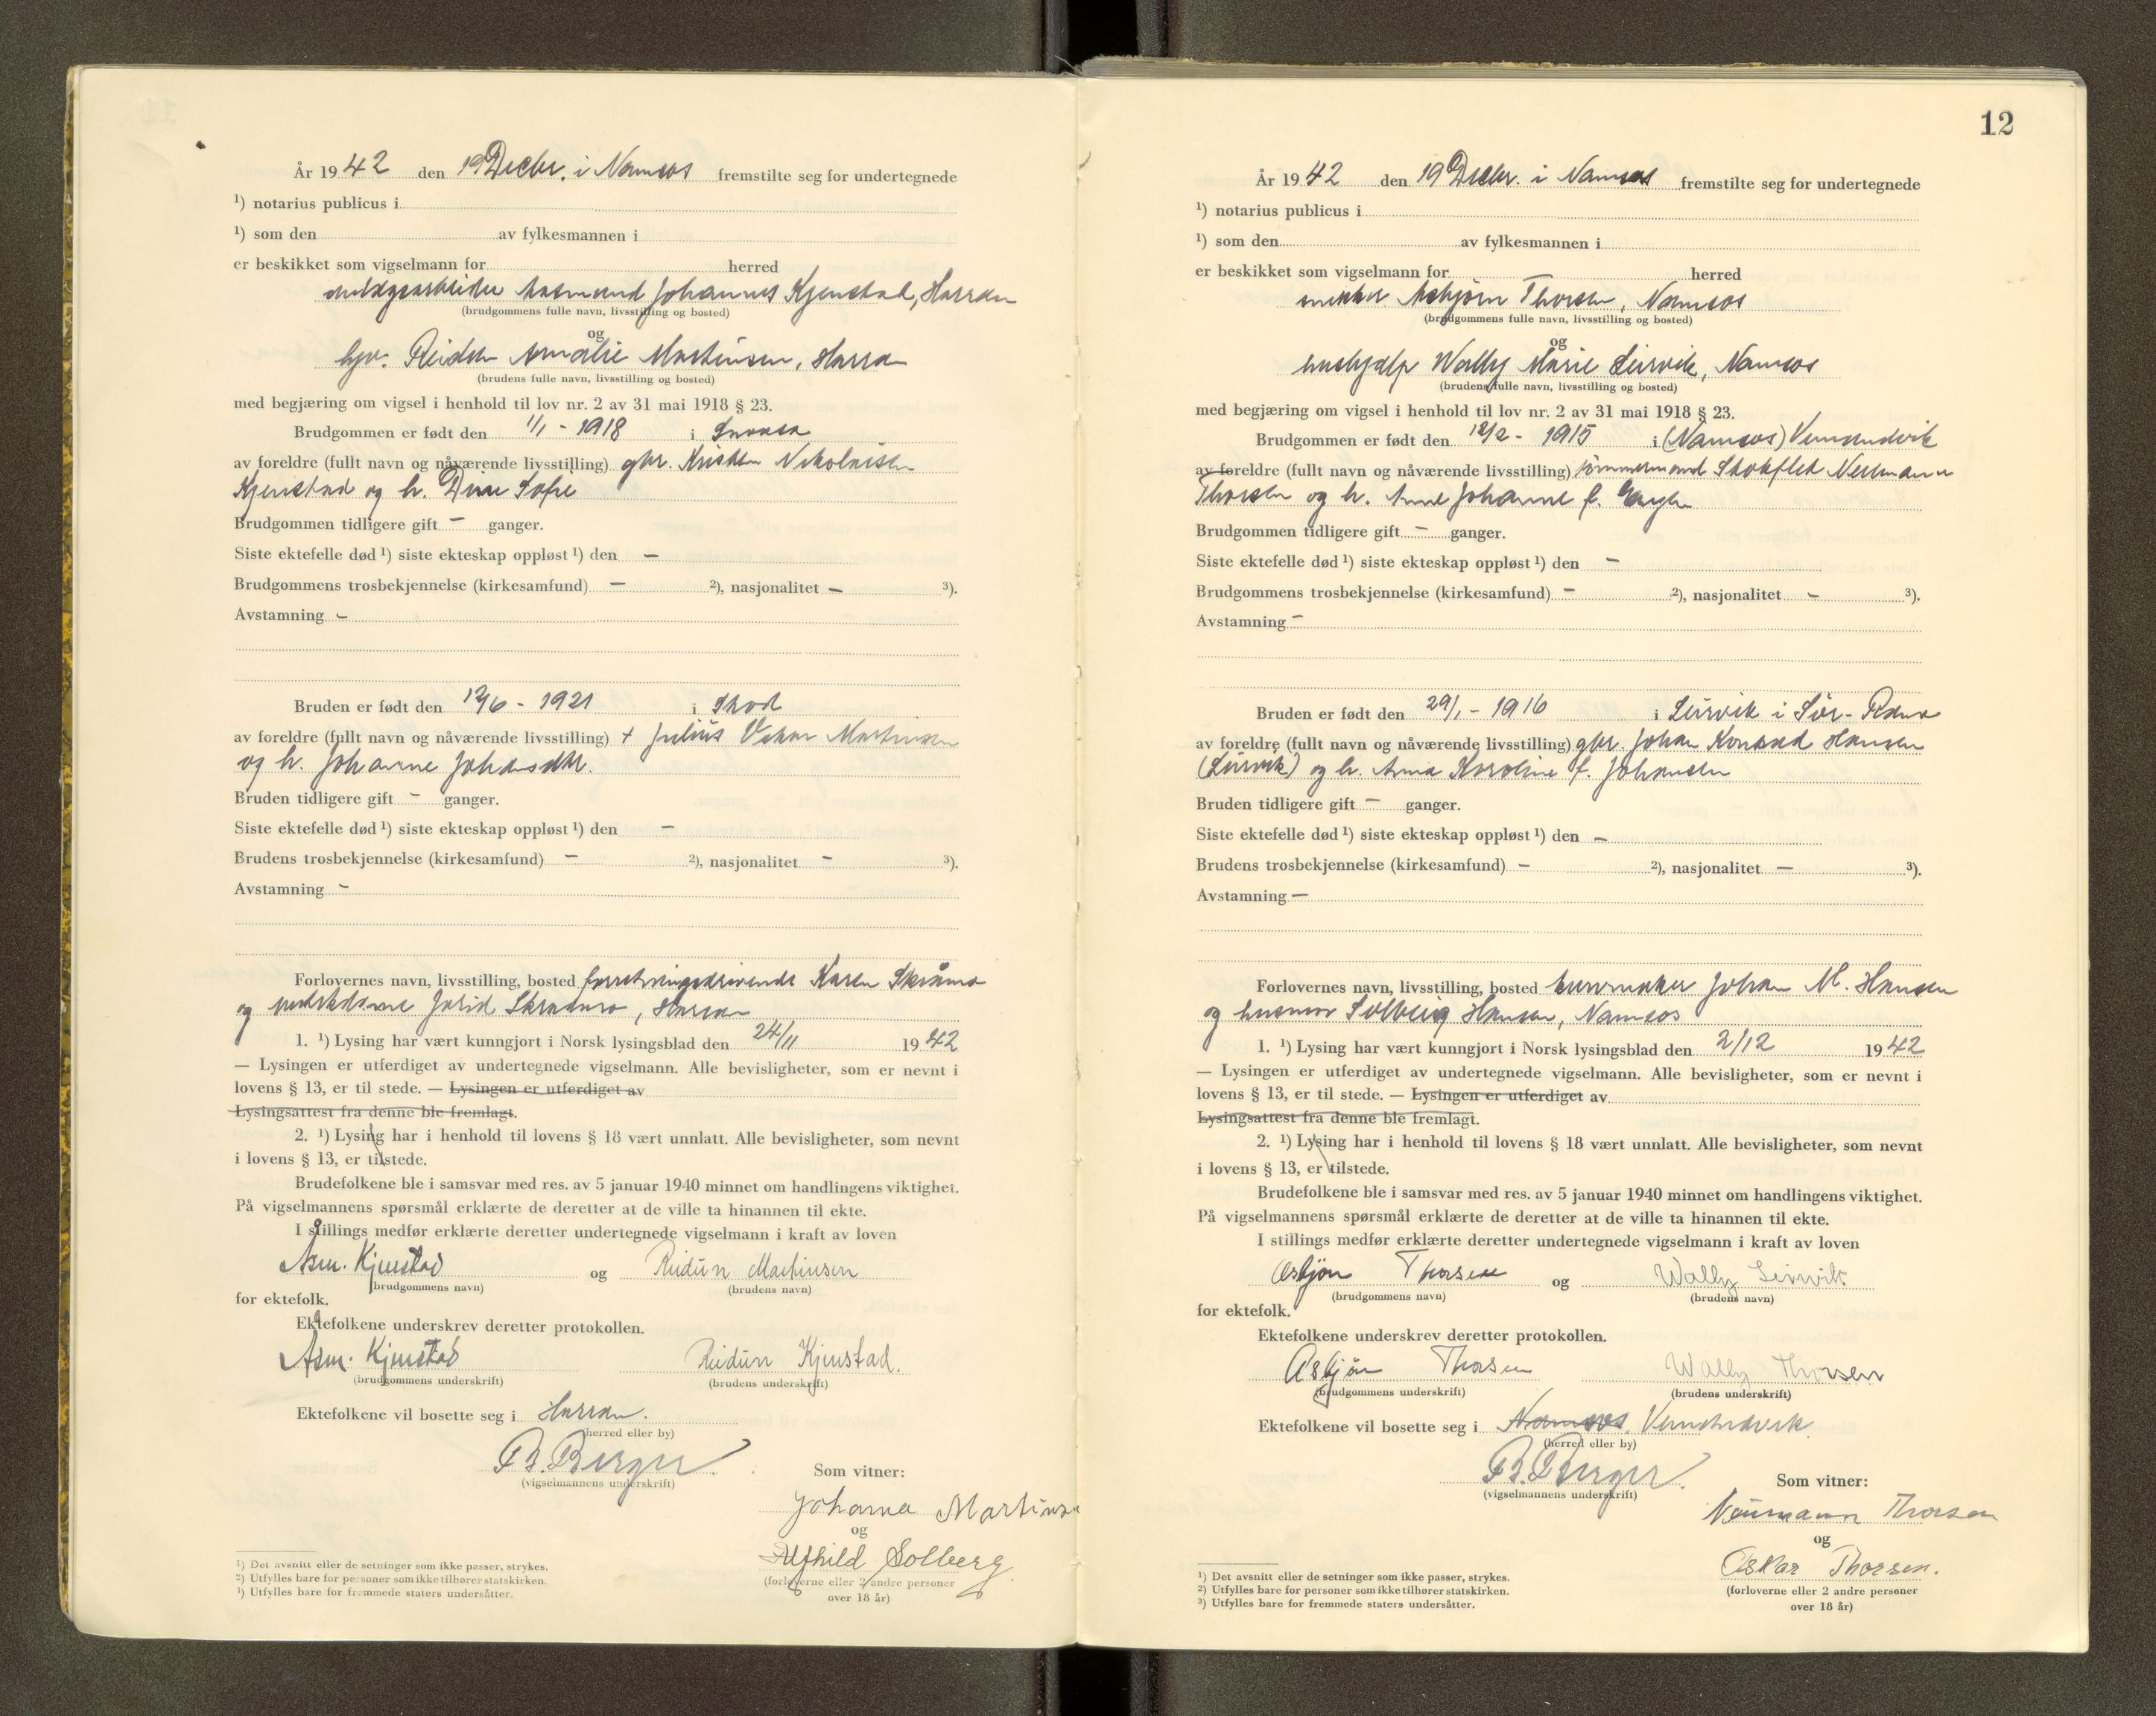 År 1942 den 19 Decbr. i Namsos fremstilte seg for undertegnede
¹) notarius publicus i
¹) som den av fylkesmannen i
er beskikket som vigselmann for herred
anlegsarbeider Aasmund Johannes Kjenstad, Harran
(brudgommens fulle navn, livsstilling og bosted)
og
Reidun Amalie Martinsen, Harran
(brudens fulle navn, livsstilling og bosted)
med begjæring om vigsel i henhold til lov nr. 2 av 31 mai 1918 § 23.
Brudgommen er født den 1/1 - 1918 i Snaasa
av foreldre (fullt navn og nåværende livsstilling) gbr. Kristen Nikolaisen
Kjenstad og h. Sofie
Brudgommen tidligere gift - ganger.
Siste ektefelle død ¹) siste ekteskap oppløst ¹) den -
Brudgommens trosbekjennelse (kirkesamfund) - ²), nasjonalitet - ³).
Avstamning -
Bruden er født den 12/6 - 1921 i Skod
av foreldre (fullt navn og nåværende livsstilling) + Julius Martinsen
og h. Johanne
Bruden tidligere gift - ganger.
Siste ektefelle død ¹) siste ekteskap oppløst ¹) den -
Brudens trosbekjennelse (kirkesamfund) - ²), nasjonalitet - ³).
Avstamning -
Forlovernes navn, livsstilling, bosted forretningsdrivende Karen
og Jorid Harran
1. ¹) Lysing har vært kunngjort i Norsk lysingsblad den 24/11 1942
— Lysingen er utferdiget av undertegnede vigselmann. Alle bevisligheter, som er nevnt i
lovens § 13, er til stede. — Lysingen er utferdiget av
Lysingsattest fra denne ble fremlagt.
2. ¹) Lysing har i henhold til lovens § 18 vært unnlatt. Alle bevisligheter, som nevnt
i lovens § 13, er tilstede.
Brudefolkene ble i samsvar med res. av 5 januar 1940 minnet om handlingens viktighet.
På vigselmannens spørsmål erklærte de deretter at de ville ta hinannen til ekte.
I stillings medfør erklærte deretter undertegnede vigselmann i kraft av loven
Asm. Kjenstad og Reidun Martinsen
(brudgommens navn) (brudens navn)
for ektefolk.
Ektefolkene underskrev deretter protokollen.
Asm. Kjenstad Reidun Kjenstad.
(brudgommens underskrift) (brudens underskrift)
Ektefolkene vil bosette seg i Harran.
(herred eller by)
B. Berger.
(vigselmannens underskrift)
Som vitner:
Johanna Martinsen
og
Alfhild Solberg
(forloverne eller 2 andre personer
over 18 år)
¹) Det avsnitt eller de setninger som ikke passer, strykes.
²) Utfylles bare for personer som ikke tilhører statskirken.
³) Utfylles bare for fremmede staters undersåtter.
12
År 1942 den 19 Decbr. i Namsos fremstilte seg for undertegnede
¹) notarius publicus i
¹) som den av fylkesmannen i
er beskikket som vigselmann for herred
snekker Asbjørn Thorsen, Namsos
(brudgommens fulle navn, livsstilling og bosted)
og
hushjelp Wally Marie Leirvik, Namsos
(brudens fulle navn, livsstilling og bosted)
med begjæring om vigsel i henhold til lov nr. 2 av 31 mai 1918 § 23.
Brudgommen er født den 12/2 - 1915 i (Namsos) Vemundvik
av foreldre (fullt navn og nåværende livsstilling) tømmermand Neumann
Thorsen og h. Anne Johanne f.
Brudgommen tidligere gift - ganger.
Siste ektefelle død ¹) siste ekteskap oppløst ¹) den -
Brudgommens trosbekjennelse (kirkesamfund) - ²), nasjonalitet - ³).
Avstamning -
Bruden er født den 29/1 - 1916 i Leirvik i Sør-
av foreldre (fullt navn og nåværende livsstilling) gbr. Johan Konrad Hansen
(Leirvik) og h. Anna Karoline f. Johansen
Bruden tidligere gift - ganger.
Siste ektefelle død ¹) siste ekteskap oppløst ¹) den -
Brudens trosbekjennelse (kirkesamfund) - ²), nasjonalitet - ³).
Avstamning -
Forlovernes navn, livsstilling, bosted Johan M. Hansen
og husmor Solveig Hansen, Namsos
1. ¹) Lysing har vært kunngjort i Norsk lysingsblad den 2/12 1942
— Lysingen er utferdiget av undertegnede vigselmann. Alle bevisligheter, som er nevnt i
lovens § 13, er til stede. — Lysingen er utferdiget av
Lysingsattest fra denne ble fremlagt.
2. ¹) Lysing har i henhold til lovens § 18 vært unnlatt. Alle bevisligheter, som nevnt
i lovens § 13, er tilstede.
Brudefolkene ble i samsvar med res. av 5 januar 1940 minnet om handlingens viktighet.
På vigselmannens spørsmål erklærte de deretter at de ville ta hinannen til ekte.
I stillings medfør erklærte deretter undertegnede vigselmann i kraft av loven
Asbjørn Thorsen og Wally Leirvik
(brudgommens navn) (brudens navn)
for ektefolk.
Ektefolkene underskrev deretter protokollen.
Asbjørn Thorsen Wally Thorsen
(brudgommens underskrift) (brudens underskrift)
Ektefolkene vil bosette seg i Namsos. Vemundvik.
(herred eller by)
B. Berger.
(vigselmannens underskrift)
Som vitner:
Neumann Thorsen
og
Oskar Thorsen.
(forloverne eller 2 andre personer
over 18 år)
¹) Det avsnitt eller de setninger som ikke passer, strykes.
²) Utfylles bare for personer som ikke tilhører statskirken.
³) Utfylles bare for fremmede staters undersåtter.